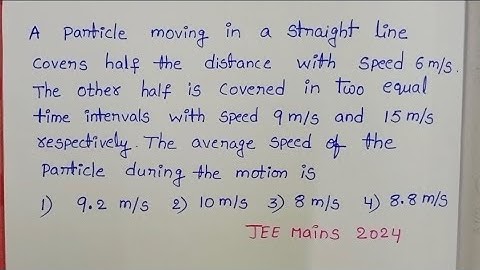 A particle moving in a straight line
covers half the distance with speed 6 m/s.
The other half is covered in two equal
time intervals with speed 9 m/s and 15 m/s
respectively. The average speed of the
particle during the motion is
1) 9.2 m/s 2) 10 m/s 3) 8 m/s 4) 8.8 m/s
JEE Mains 2024